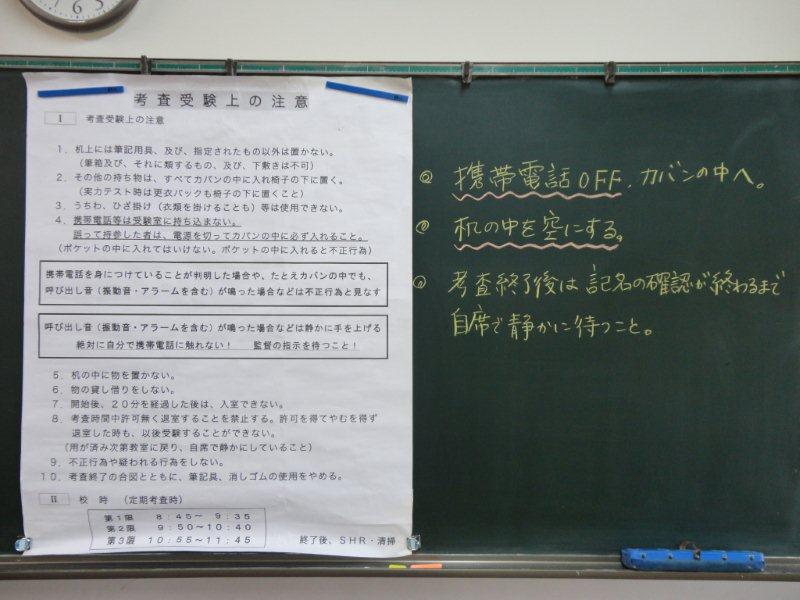 考査受験上の注意
Ⅰ 考査受験上の注意
1．机上には筆記用具、及び、指定されたもの以外は置かない。
（筆箱及び、それに類するもの、及び、下敷きは不可）
2．その他の持ち物は、すべてカバンの中に入れ椅子の下に置く。
（実力テスト時は更衣バックも椅子の下に置くこと）
3．うちわ、ひざ掛け（衣類を掛けることも）等は使用できない。
4．携帯電話等は受験室に持ち込まない。
誤って持参した者は、電源を切ってカバンの中に必ず入れること。
（ポケットの中に入れてはいけない。ポケットの中に入れると不正行為）
携帯電話を身につけていることが判明した場合や、たとえカバンの中でも、
呼び出し音（振動音・アラームを含む）が鳴った場合などは不正行為と見なす
呼び出し音（振動音・アラームを含む）が鳴った場合などは静かに手を上げる
絶対に自分で携帯電話に触れない！ 監督の指示を待つこと！
5．机の中に物を置かない。
6．物の貸し借りをしない。
7．開始後、20分を経過した後は、入室できない。
8．考査時間中許可無く退室することを禁止する。許可を得てやむを得ず
退室した時も、以後受験することができない。
（用が済み次第教室に戻り、自席で静かにしていること）
9．不正行為や疑われる行為をしない。
10．考査終了の合図とともに、筆記具、消しゴムの使用をやめる。
Ⅱ 校時 （定期考査時）
第1限 8：45～ 9：35
第2限 9：50～10：40
第3限 10：55～11：45
終了後、SHR・清掃
◎ 携帯電話OFF．カバンの中へ。
◎ 机の中を空にする。
◎ 考査終了後は 記名の確認が終わるまで
自席で静かに待つこと。